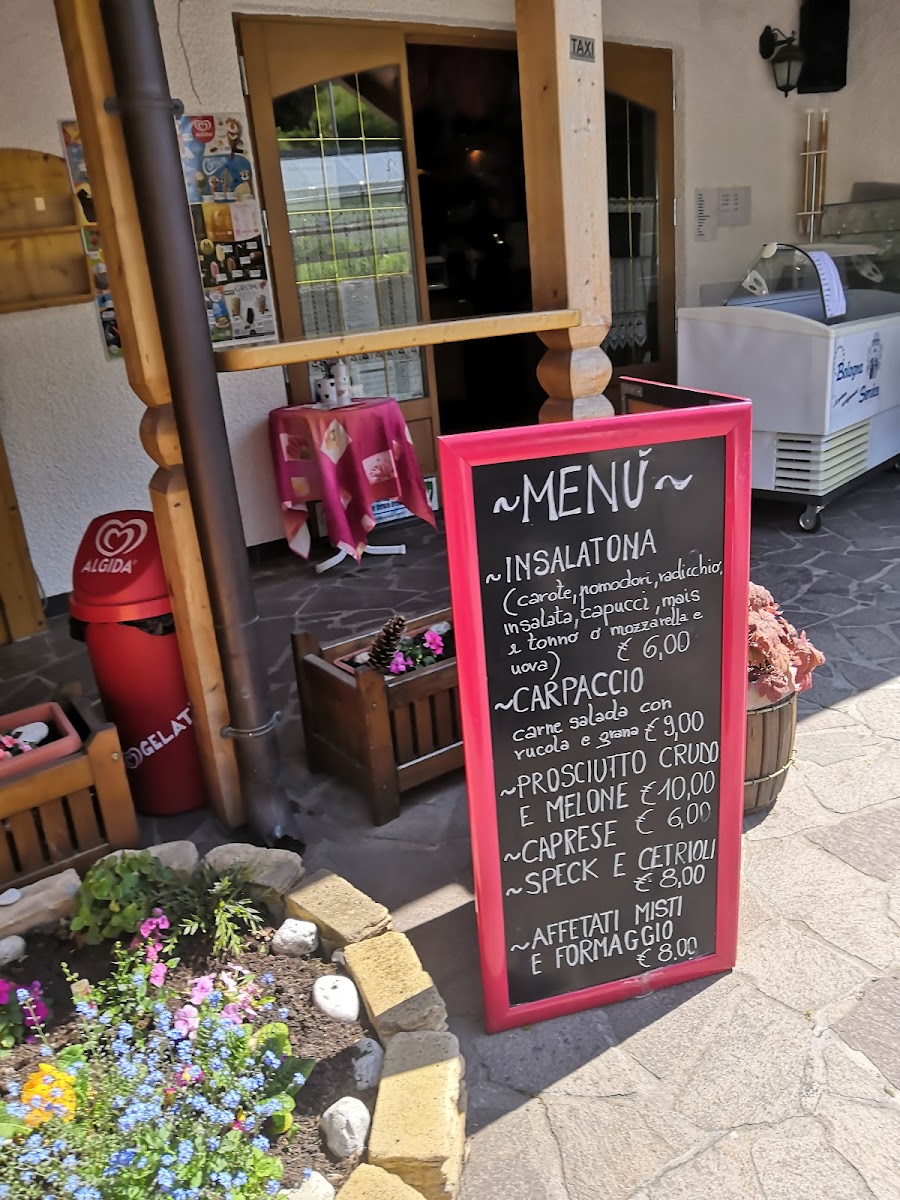 TAXI
ALGIDA
GELATI
Bologna
Service
~MENÙ~
~INSALATONA
(carote, pomodori, radicchio,
insalata, capucci, mais
e tonno o mozzarella e
uova) € 6,00
~CARPACCIO
carne salada con
rucola e grana € 9,00
~PROSCIUTTO CRUDO
E MELONE € 10,00
~CAPRESE € 6,00
~SPECK E CETRIOLI
€ 8,00
~AFFETATI MISTI
E FORMAGGIO
€ 8.00